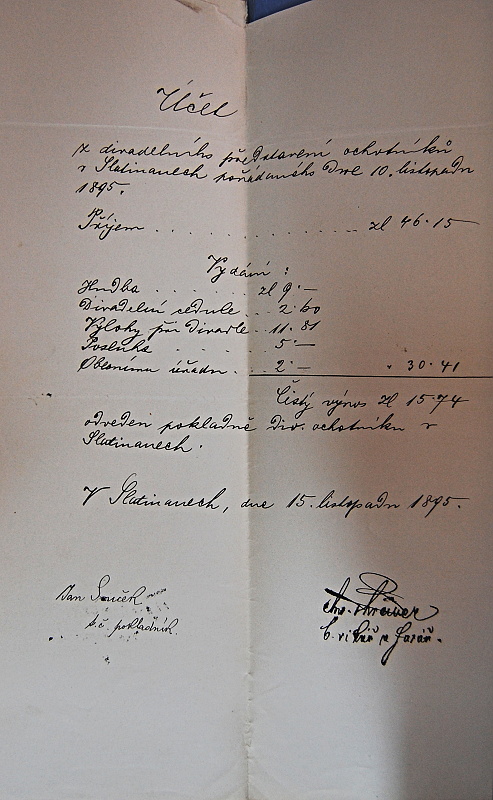 Účet
z divadelního představení ochotníků
v Slatinanech pořádaného dne 10. listopadu
1895.
Příjem . . . . . . . . . . . . . . zl 46·15
Vydání :
Hudba . . . . . . zl 9·—
Divadelní cedule . . 2·60
Výlohy při divadle . . 11·81
Posluha . . . . 5·—
Obecnímu úřadu . . 2·— " 30·41
Čistý výnos zl 15·74
odveden pokladně div. ochotníku v
Slatinanech.
V Slatinanech, dne 15. listopadu 1895.
Jan Souček
t. č. pokladník.
b. vikář a farář.